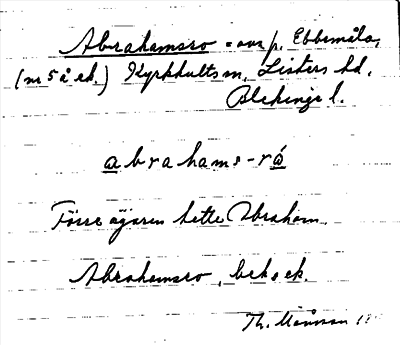 Abrahamsro = avs p. Ebbemåla,
(nr 5 å ek.) Kyrkhults sn, Listers hd,
Blekinge l.
abrahams-ró
Förre ägaren hette Abraham.
Abrahamsro, bek. ek.
Th. Månsson